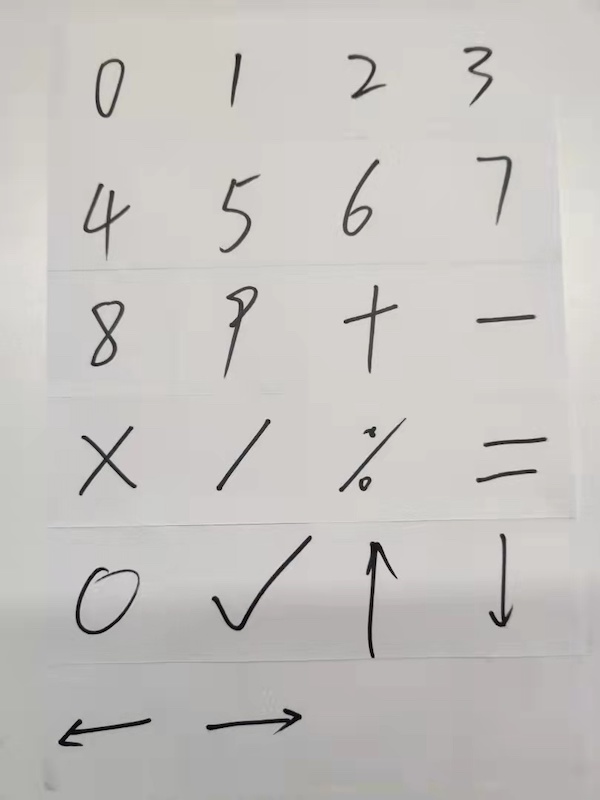 0 1 2 3
4 5 6 7
8 9 + −
× / % =
○ ✓ ↑ ↓
← →